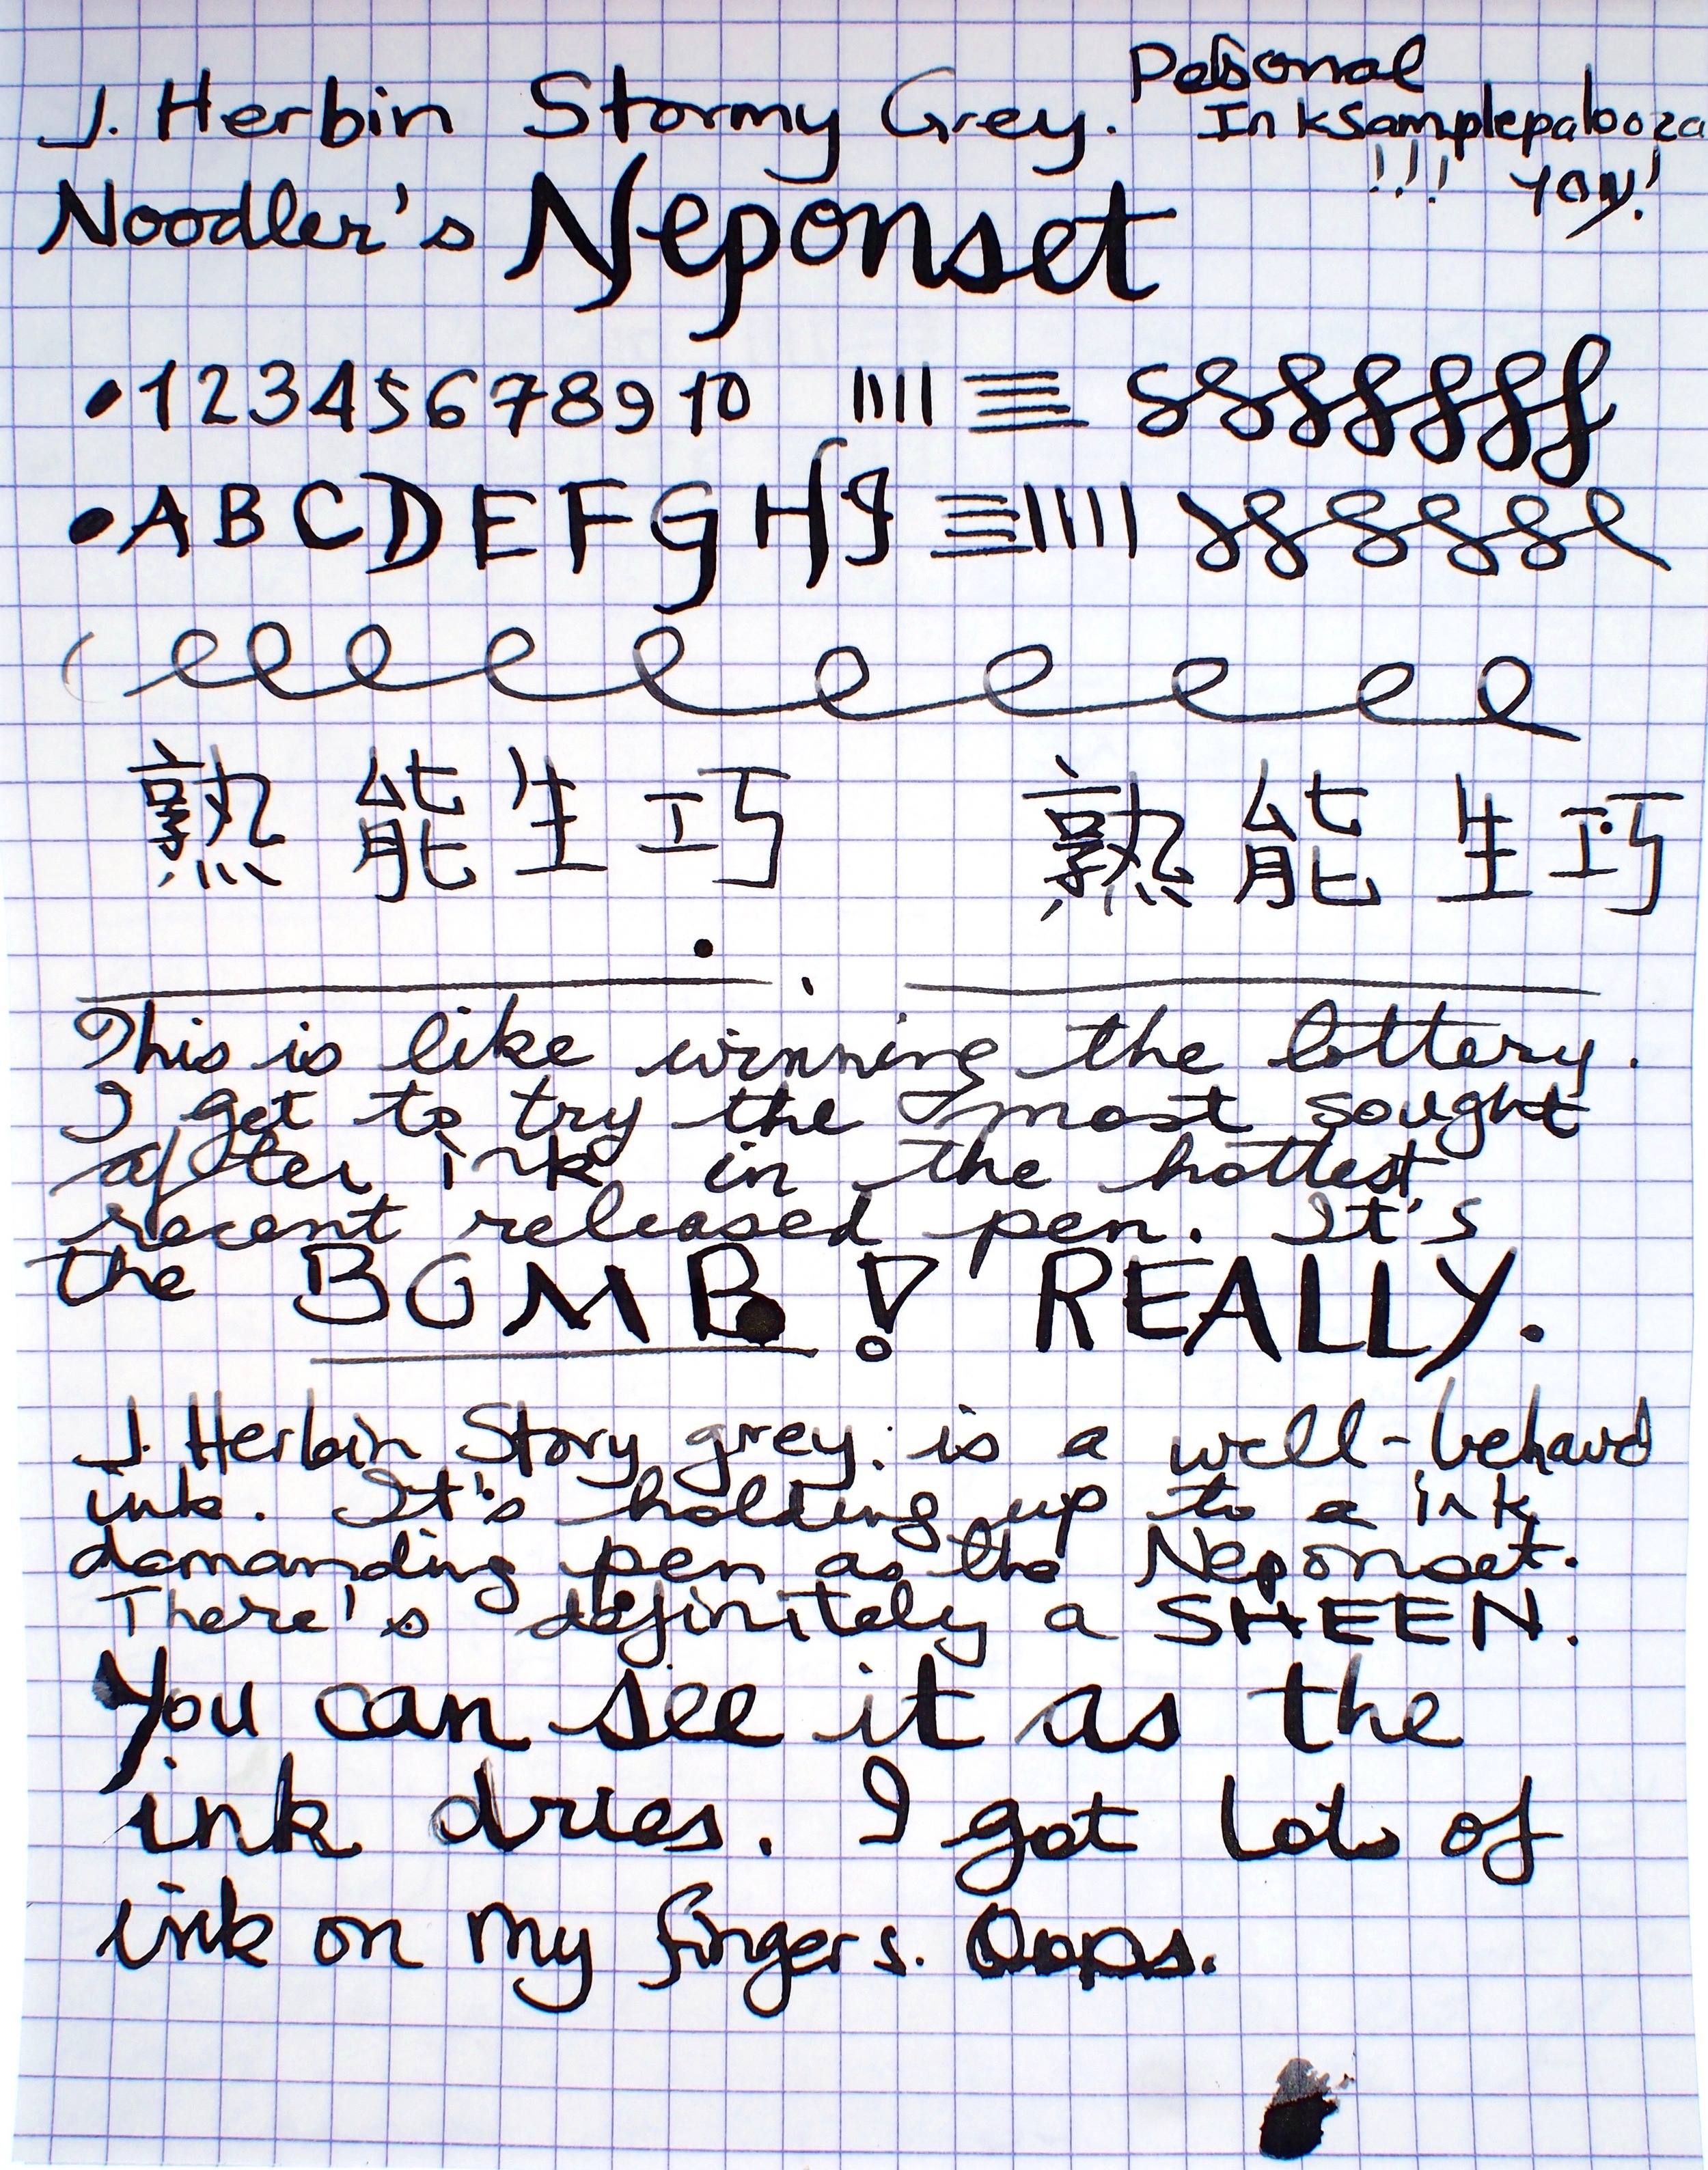 J. Herbin Stormy Grey. Personal
InkSamplepalooza
!!! YAY!
Noodler's Neponset
1 2 3 4 5 6 7 8 9 10
A B C D E F G H I
熟能生巧 熟能生巧
This is like winning the lottery.
I get to try the most sought
after ink in the hottest
recent released pen. It's
the BOMB! REALLY.
J. Herbin Story grey. is a well-behavd
ink. It's holding up to a ink
demanding pen as the Neponset.
There's definitely a SHEEN.
You can see it as the
ink dries. I got lots of
ink on my fingers. Oops.